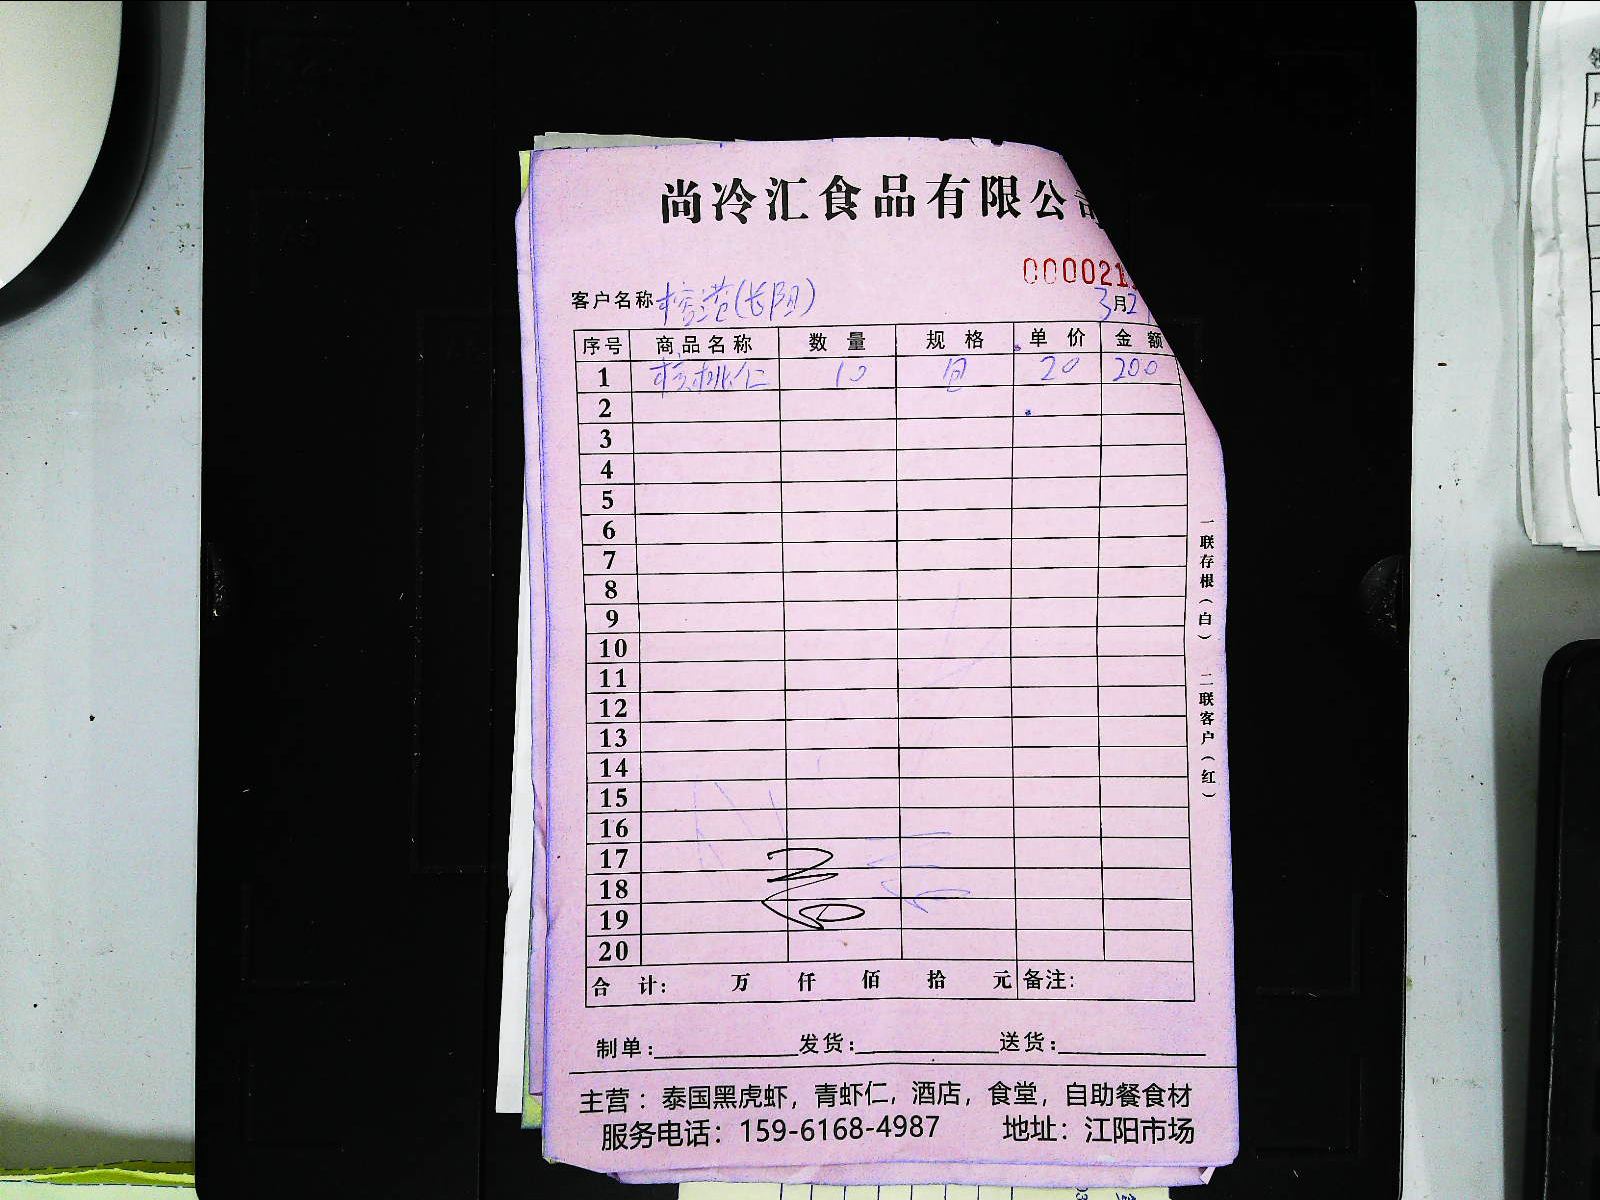 尚冷汇食品有限公司
000021
客户名称 港(长阳) 3月2
序号 商品名称 数量 规格 单价 金额
1 核桃仁 10 20 200
2
3
4
5
6
7
8
9
10
11
12
13
14
15
16
17
18
19
20
合计: 万 仟 佰 拾 元 备注:
制单: 发货: 送货:
主营：泰国黑虎虾，青虾仁，酒店，食堂，自助餐食材
服务电话：159-6168-4987 地址：江阳市场
一联存根(白) 二联客户(红)